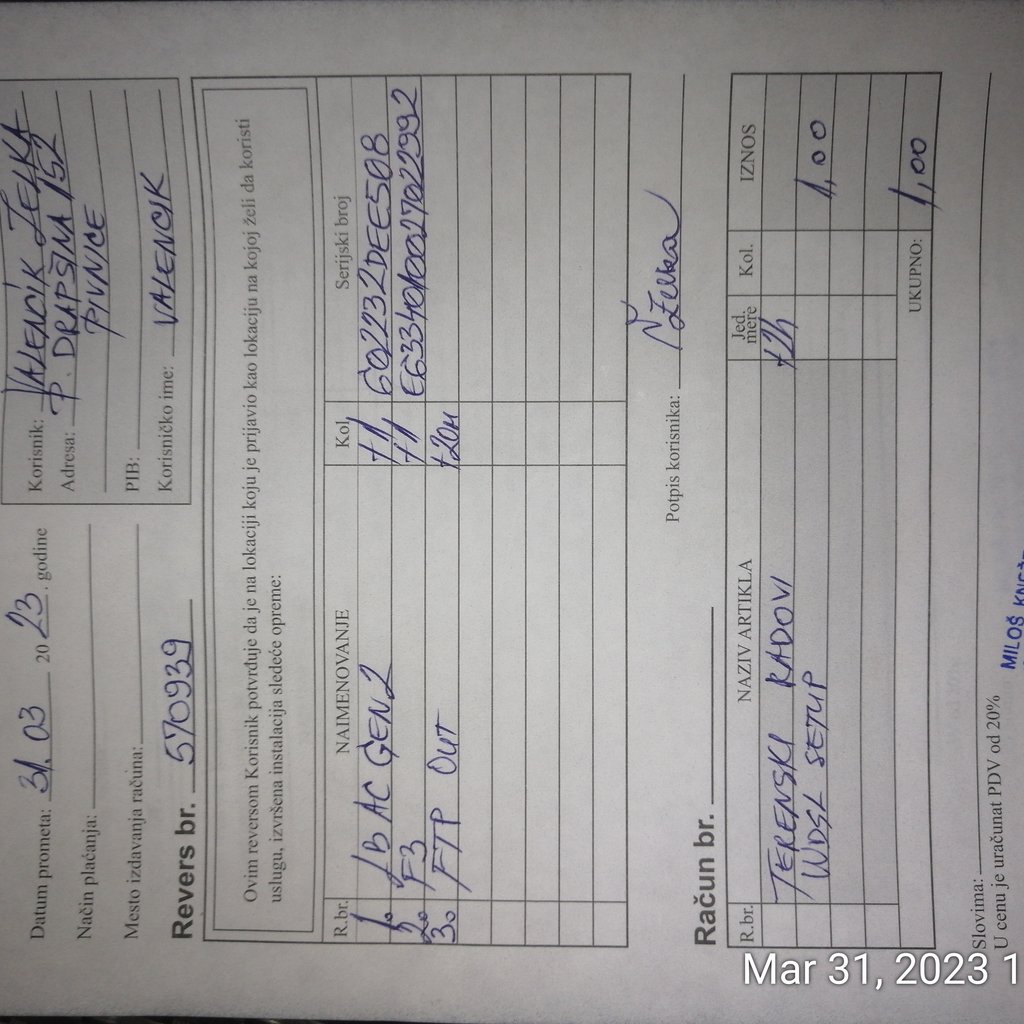 Datum prometa: 31. 03 2023. godine
Način plaćanja:
Mesto izdavanja računa:
Revers br. 570939
Korisnik: VALENCIK ŽELJKA
Adresa: P. DRAPŠINA 152
PIVNICE
PIB:
Korisničko ime: VALENCIK
Ovim reversom Korisnik potvrđuje da je na lokaciji koju je prijavio kao lokaciju na kojoj želi da koristi
uslugu, izvršena instalacija sledeće opreme:
R.br. NAIMENOVANJE Kol. Serijski broj
1. LB AC GEN2 +1 602232DEE50B
2. F3 +1 E6334010027022992
3. FTP OUT +20m
Potpis korisnika: Željka
Račun br.
R.br. NAZIV ARTIKLA Jed. mere Kol. IZNOS
TERENSKI RADOVI +2h
WDSL SETUP 1,00
UKUPNO: 1,00
Slovima:
U cenu je uračunat PDV od 20%
MILOŠ
Mar 31, 2023 1